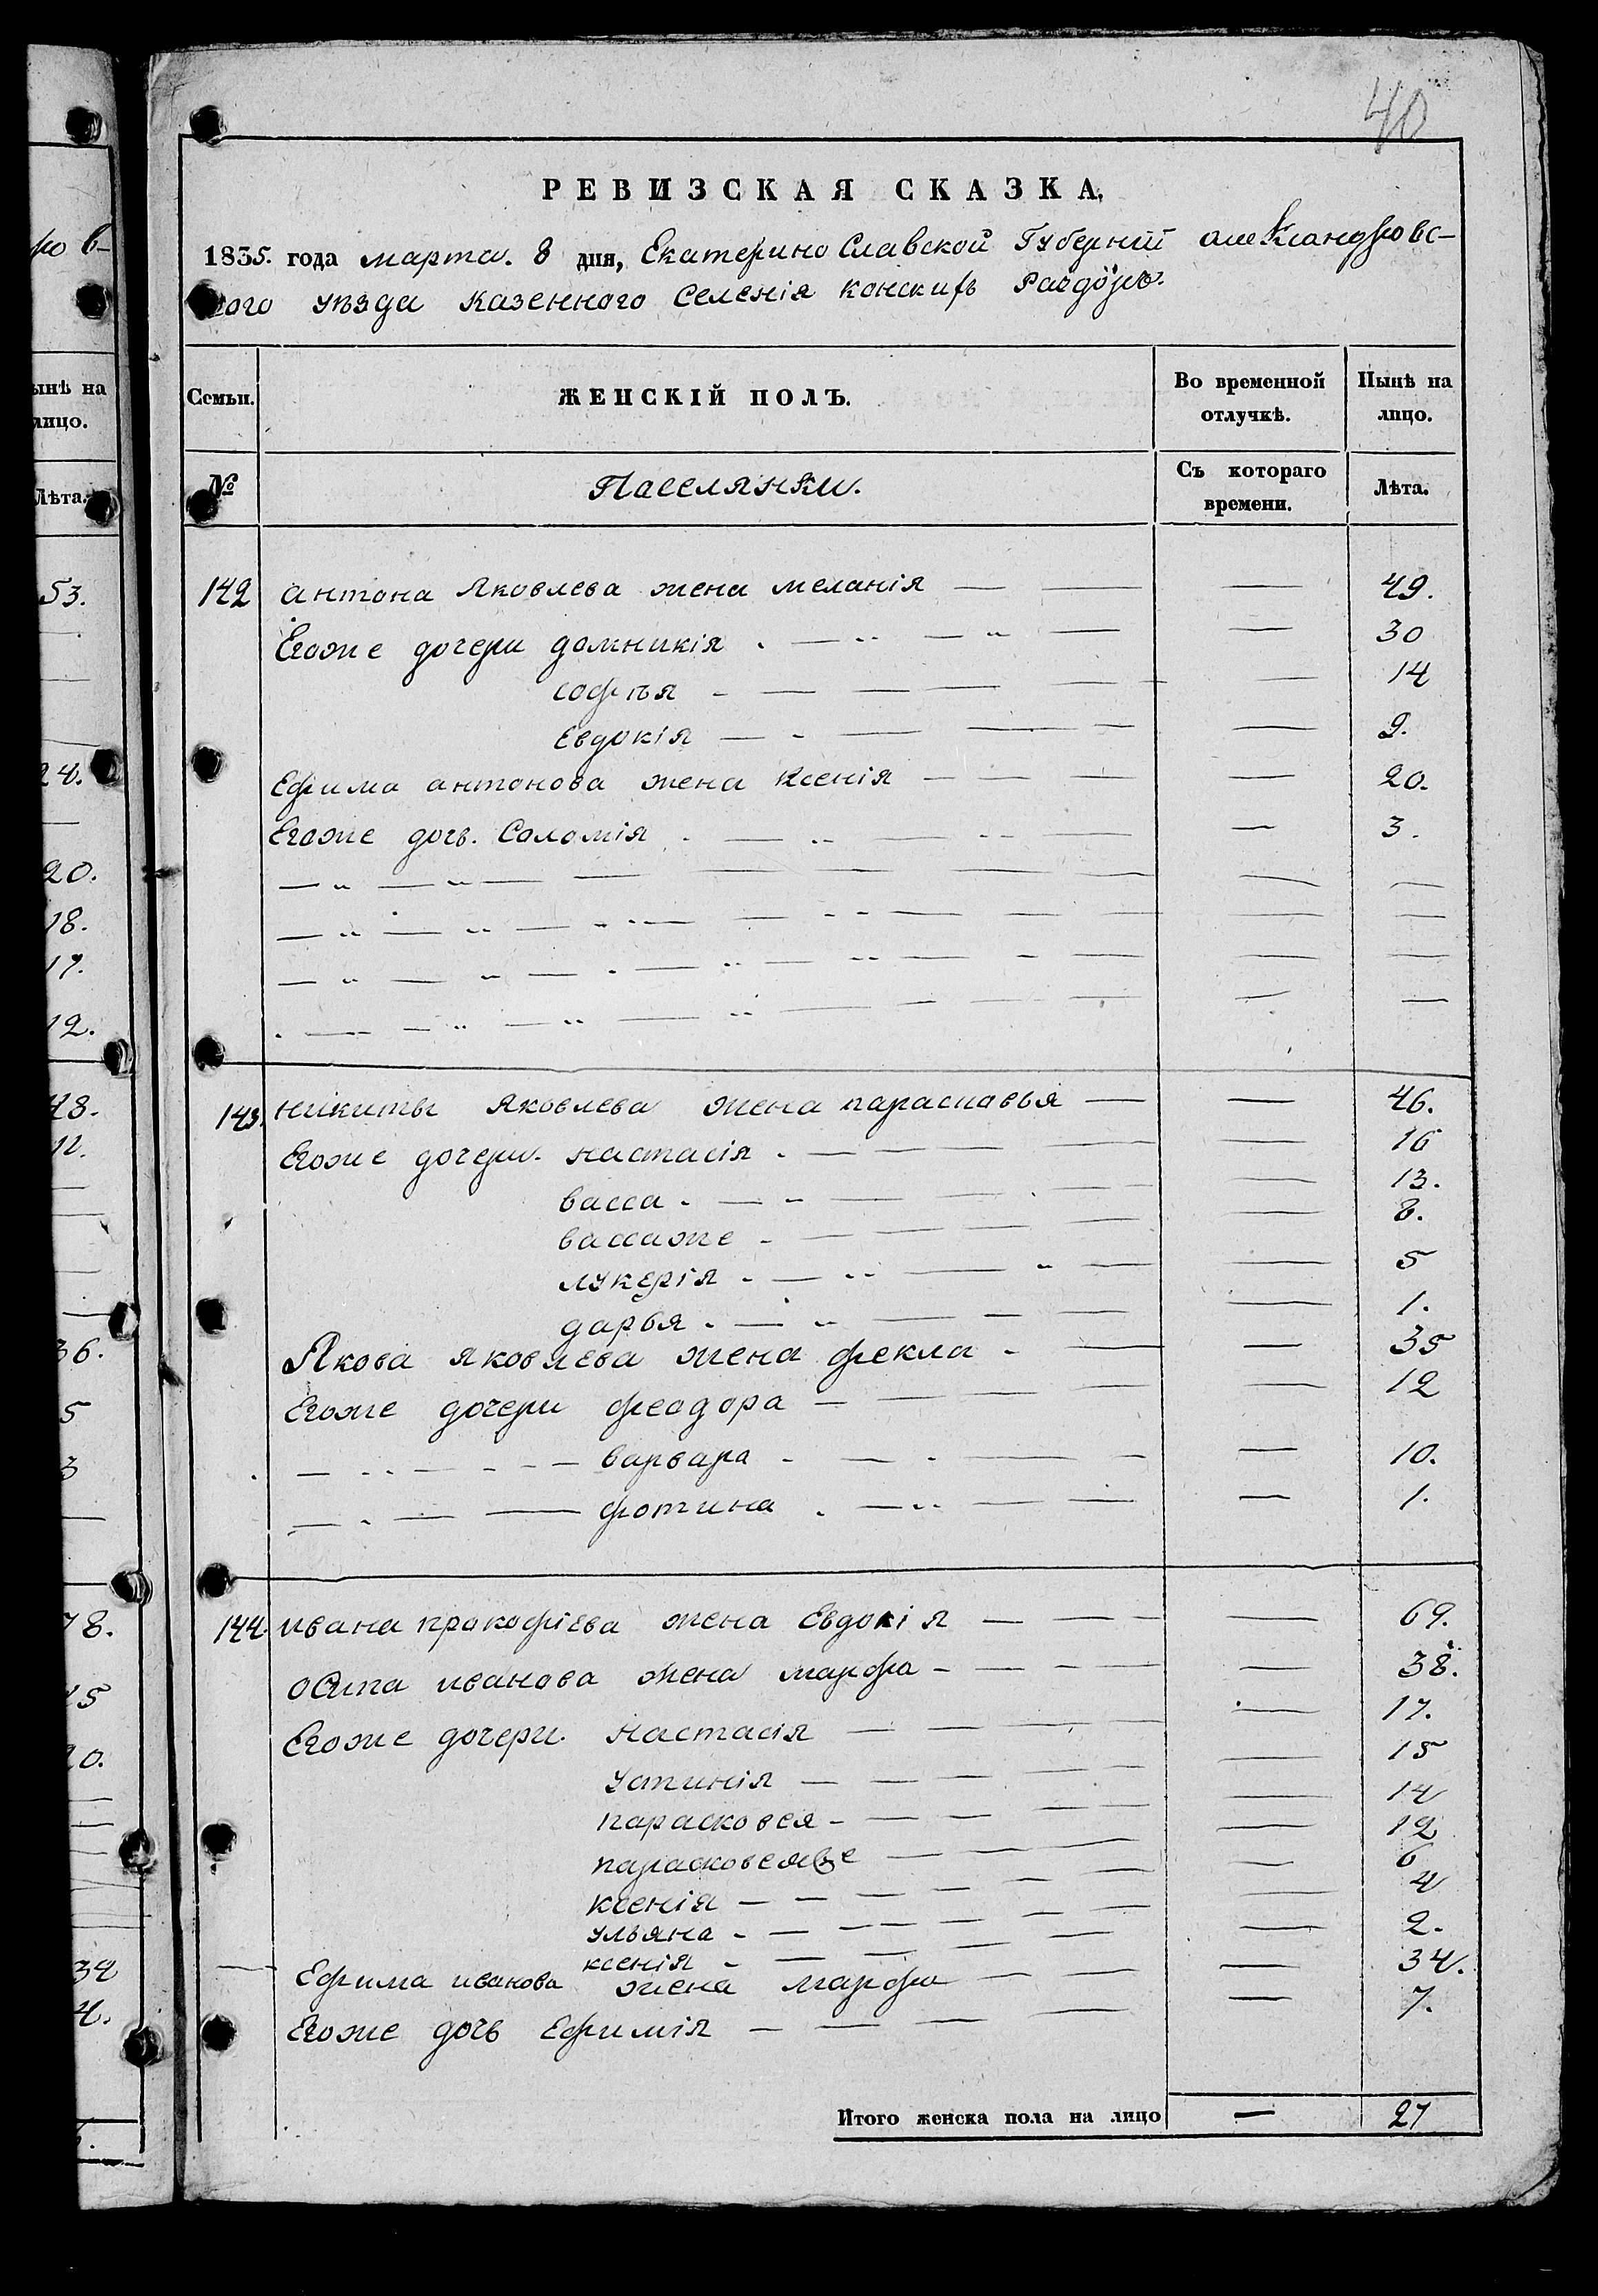 40
РЕВИЗСКАЯ СКАЗКА.
1835. года марта. 8 дня, Екатерино Славской Губерніи александровс-
кого уѣзда казенного Селенія конскихъ Раздоръ.
Семьи. ЖЕНСКІЙ ПОЛЪ. Во временной отлучкѣ. Нынѣ на лицо.
№ Паселянки. Съ котораго времени. Лѣта.
142 антона Яковлева жена меланія — — — 49.
Егоже дочери домникія — — — 30
софья — — — 14
Евдокія — — — 9.
Ефима антонова жена Ксенія — — — 20.
Егоже дочь. Соломія — — — 3.
143. никиты Яковлева жена парасковья — — 46.
Егоже дочери. настасія — — — 16
васса — — — 13.
вассаже — — — 8.
лукерія — — — 5
дарья — — — 1.
Якова яковлева жена фекла — — 35
Егоже дочери феодора — — — 12
— — — варвара — — — 10.
— — — фотина — — — 1.
144. ивана прокофіева жена Евдокія — — — 69.
осипа иванова жена марфа — — — 38.
Егоже дочери. настасія — — — 17.
Устинія — — — 15
парасковея — — — 14
парасковеяже — — — 12
ксенія — — — 6
ульяна — — — 4
ксенія — — — 2.
Ефима иванова жена марфа — — — 34.
Егоже дочь Ефимія — — — 7.
Итого женска пола на лицо — 27
ро в-
ынѣ на
лицо.
Лѣта.
53.
24.
20.
18.
17.
12.
48.
36.
5
3
78.
34
4.